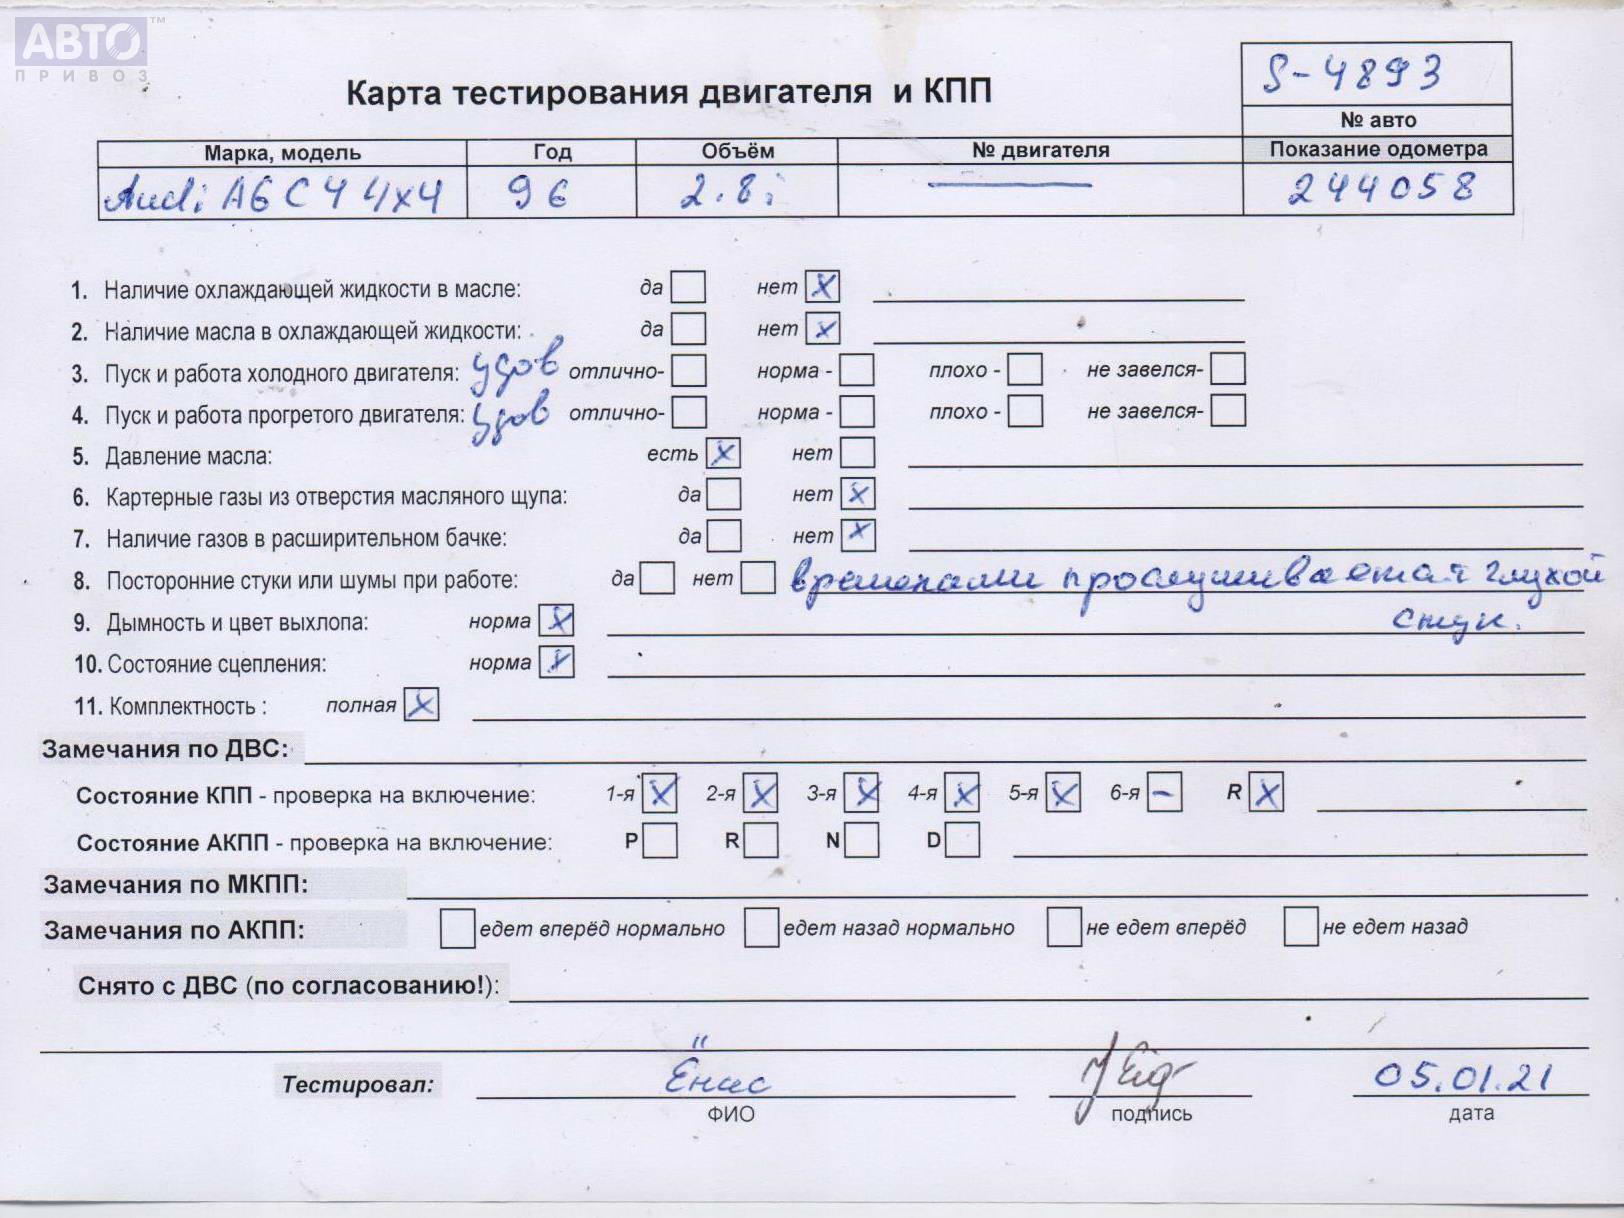 АВТО™
ПРИВОЗ
S-4893
Карта тестирования двигателя и КПП
№ авто
Марка, модель Год Объём № двигателя Показание одометра
Audi A6 C4 4x4 96 2.8i — 244058
1. Наличие охлаждающей жидкости в масле: да нет X
2. Наличие масла в охлаждающей жидкости: да нет X
3. Пуск и работа холодного двигателя: удов отлично- норма - плохо - не завелся-
4. Пуск и работа прогретого двигателя: удов отлично- норма - плохо - не завелся-
5. Давление масла: есть X нет
6. Картерные газы из отверстия масляного щупа: да нет X
7. Наличие газов в расширительном бачке: да нет X
8. Посторонние стуки или шумы при работе: да нет временами прослушивается глухой
стук.
9. Дымность и цвет выхлопа: норма X
10. Состояние сцепления: норма X
11. Комплектность : полная X
Замечания по ДВС:
Состояние КПП - проверка на включение: 1-я X 2-я X 3-я X 4-я X 5-я X 6-я – R X
Состояние АКПП - проверка на включение: P R N D
Замечания по МКПП:
Замечания по АКПП: едет вперёд нормально едет назад нормально не едет вперёд не едет назад
Снято с ДВС (по согласованию!):
Тестировал: Ёнис 05.01.21
ФИО подпись дата